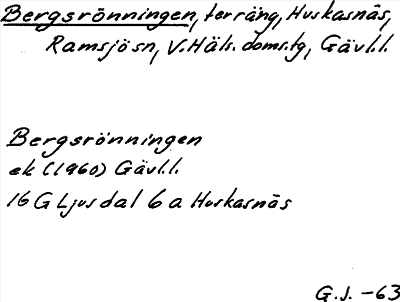 Bergsrönningen, terräng, Huskasnäs,
Ramsjö sn, V. Häls. doms.tg, Gävl.l.
Bergsrönningen
ek (1960) Gävl.l.
16 G Ljusdal 6 a Huskasnäs
G.J. -63